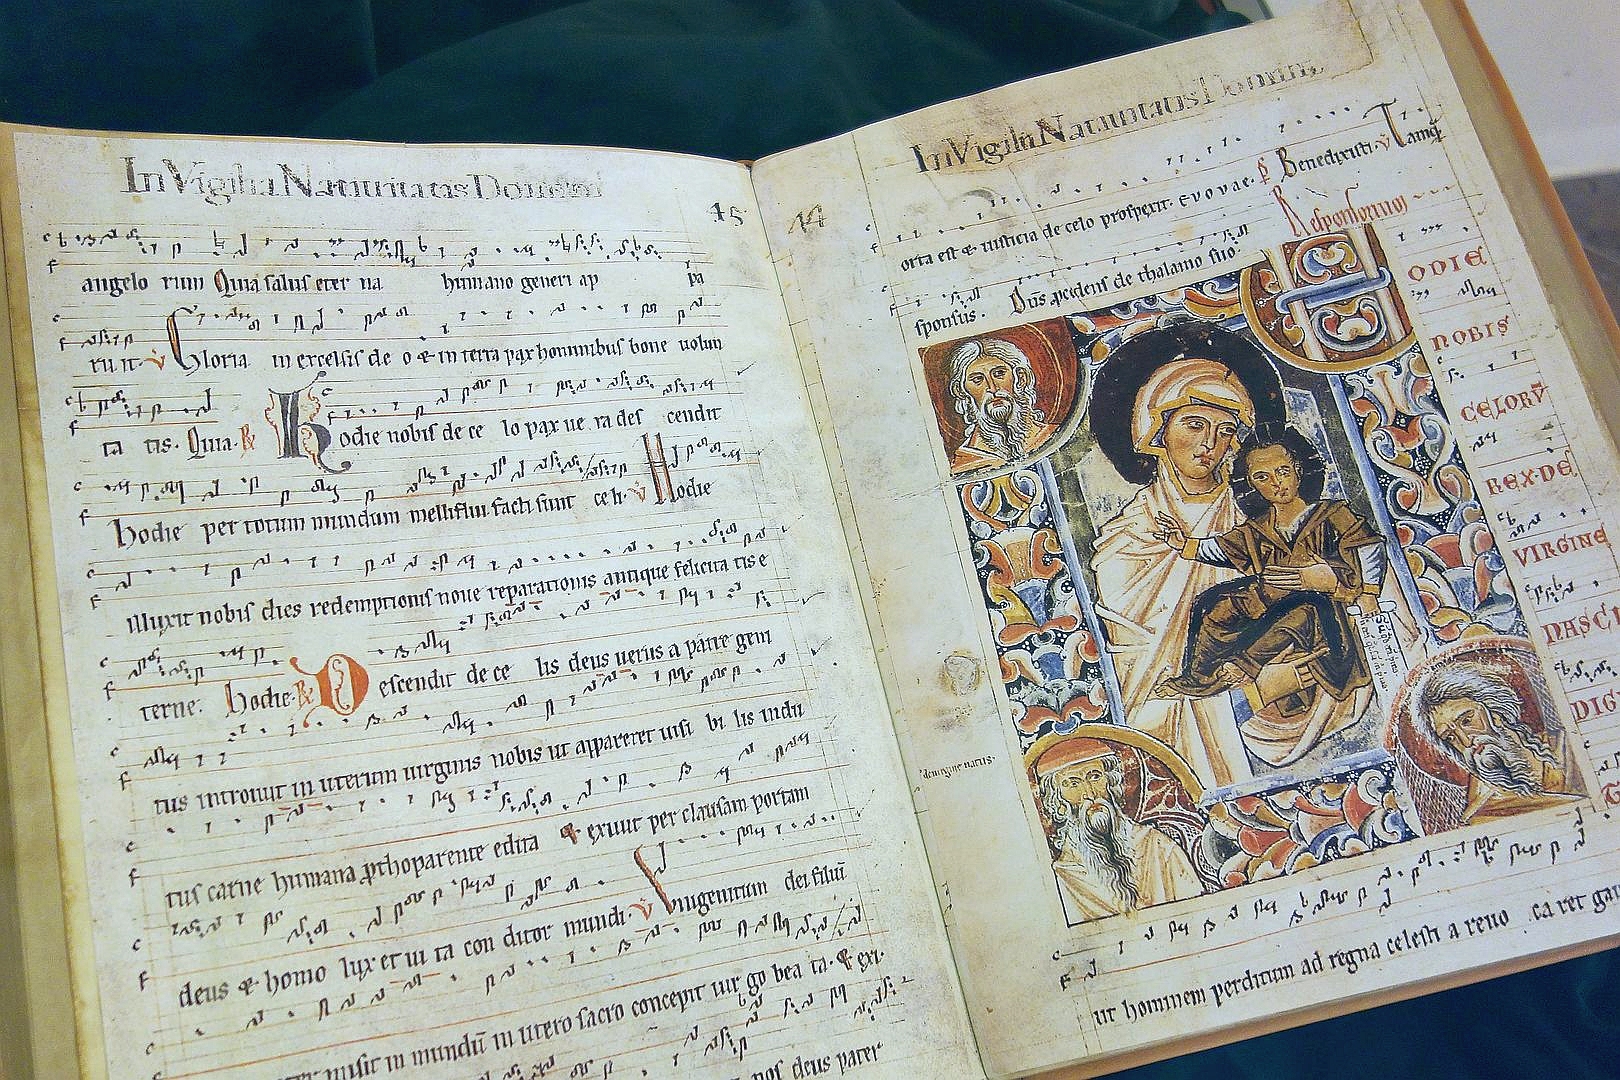 In Vigilia Natiuitatis Domini
15
angelo rum Quia salus eter na humano generi ap pa
ru it. Gloria in excelsis deo & in terra pax hominibus bone uolun
ta tis. Quia. Hodie nobis de ce lo pax ue ra des cendit
hodie per totum mundum melliflui facti sunt celi. Hodie
illuxit nobis dies redemptionis noue reparationis antique felicita tis e
terne. hodie. Descendit de ce lis deus uerus a patre geni
tus introiuit in uterum uirginis nobis ut appareret uisi bi lis indu
tus carne humana prothoparente edita & exiuit per clausam portam
deus & homo lux et ui ta con ditor mundi. Vnigenitum dei filiũ
misit in mundũ in utero sacro concepit uir go bea ta. & exi.
nos deus pater
In Vigilia Natiuitatis Domini
orta est & iusticia de celo prosperit. euouae. Benedixisti. Tamq̃
sponsus. Dñs p̃cedens de thalamo suo. Responsorium
ODIE
NOBIS
CELORṼ
REX·DE
VIRGINE
NASCI
DIG
de uirgine natus.
ut hominem perditum ad regna celesti a reuo ca ret gau